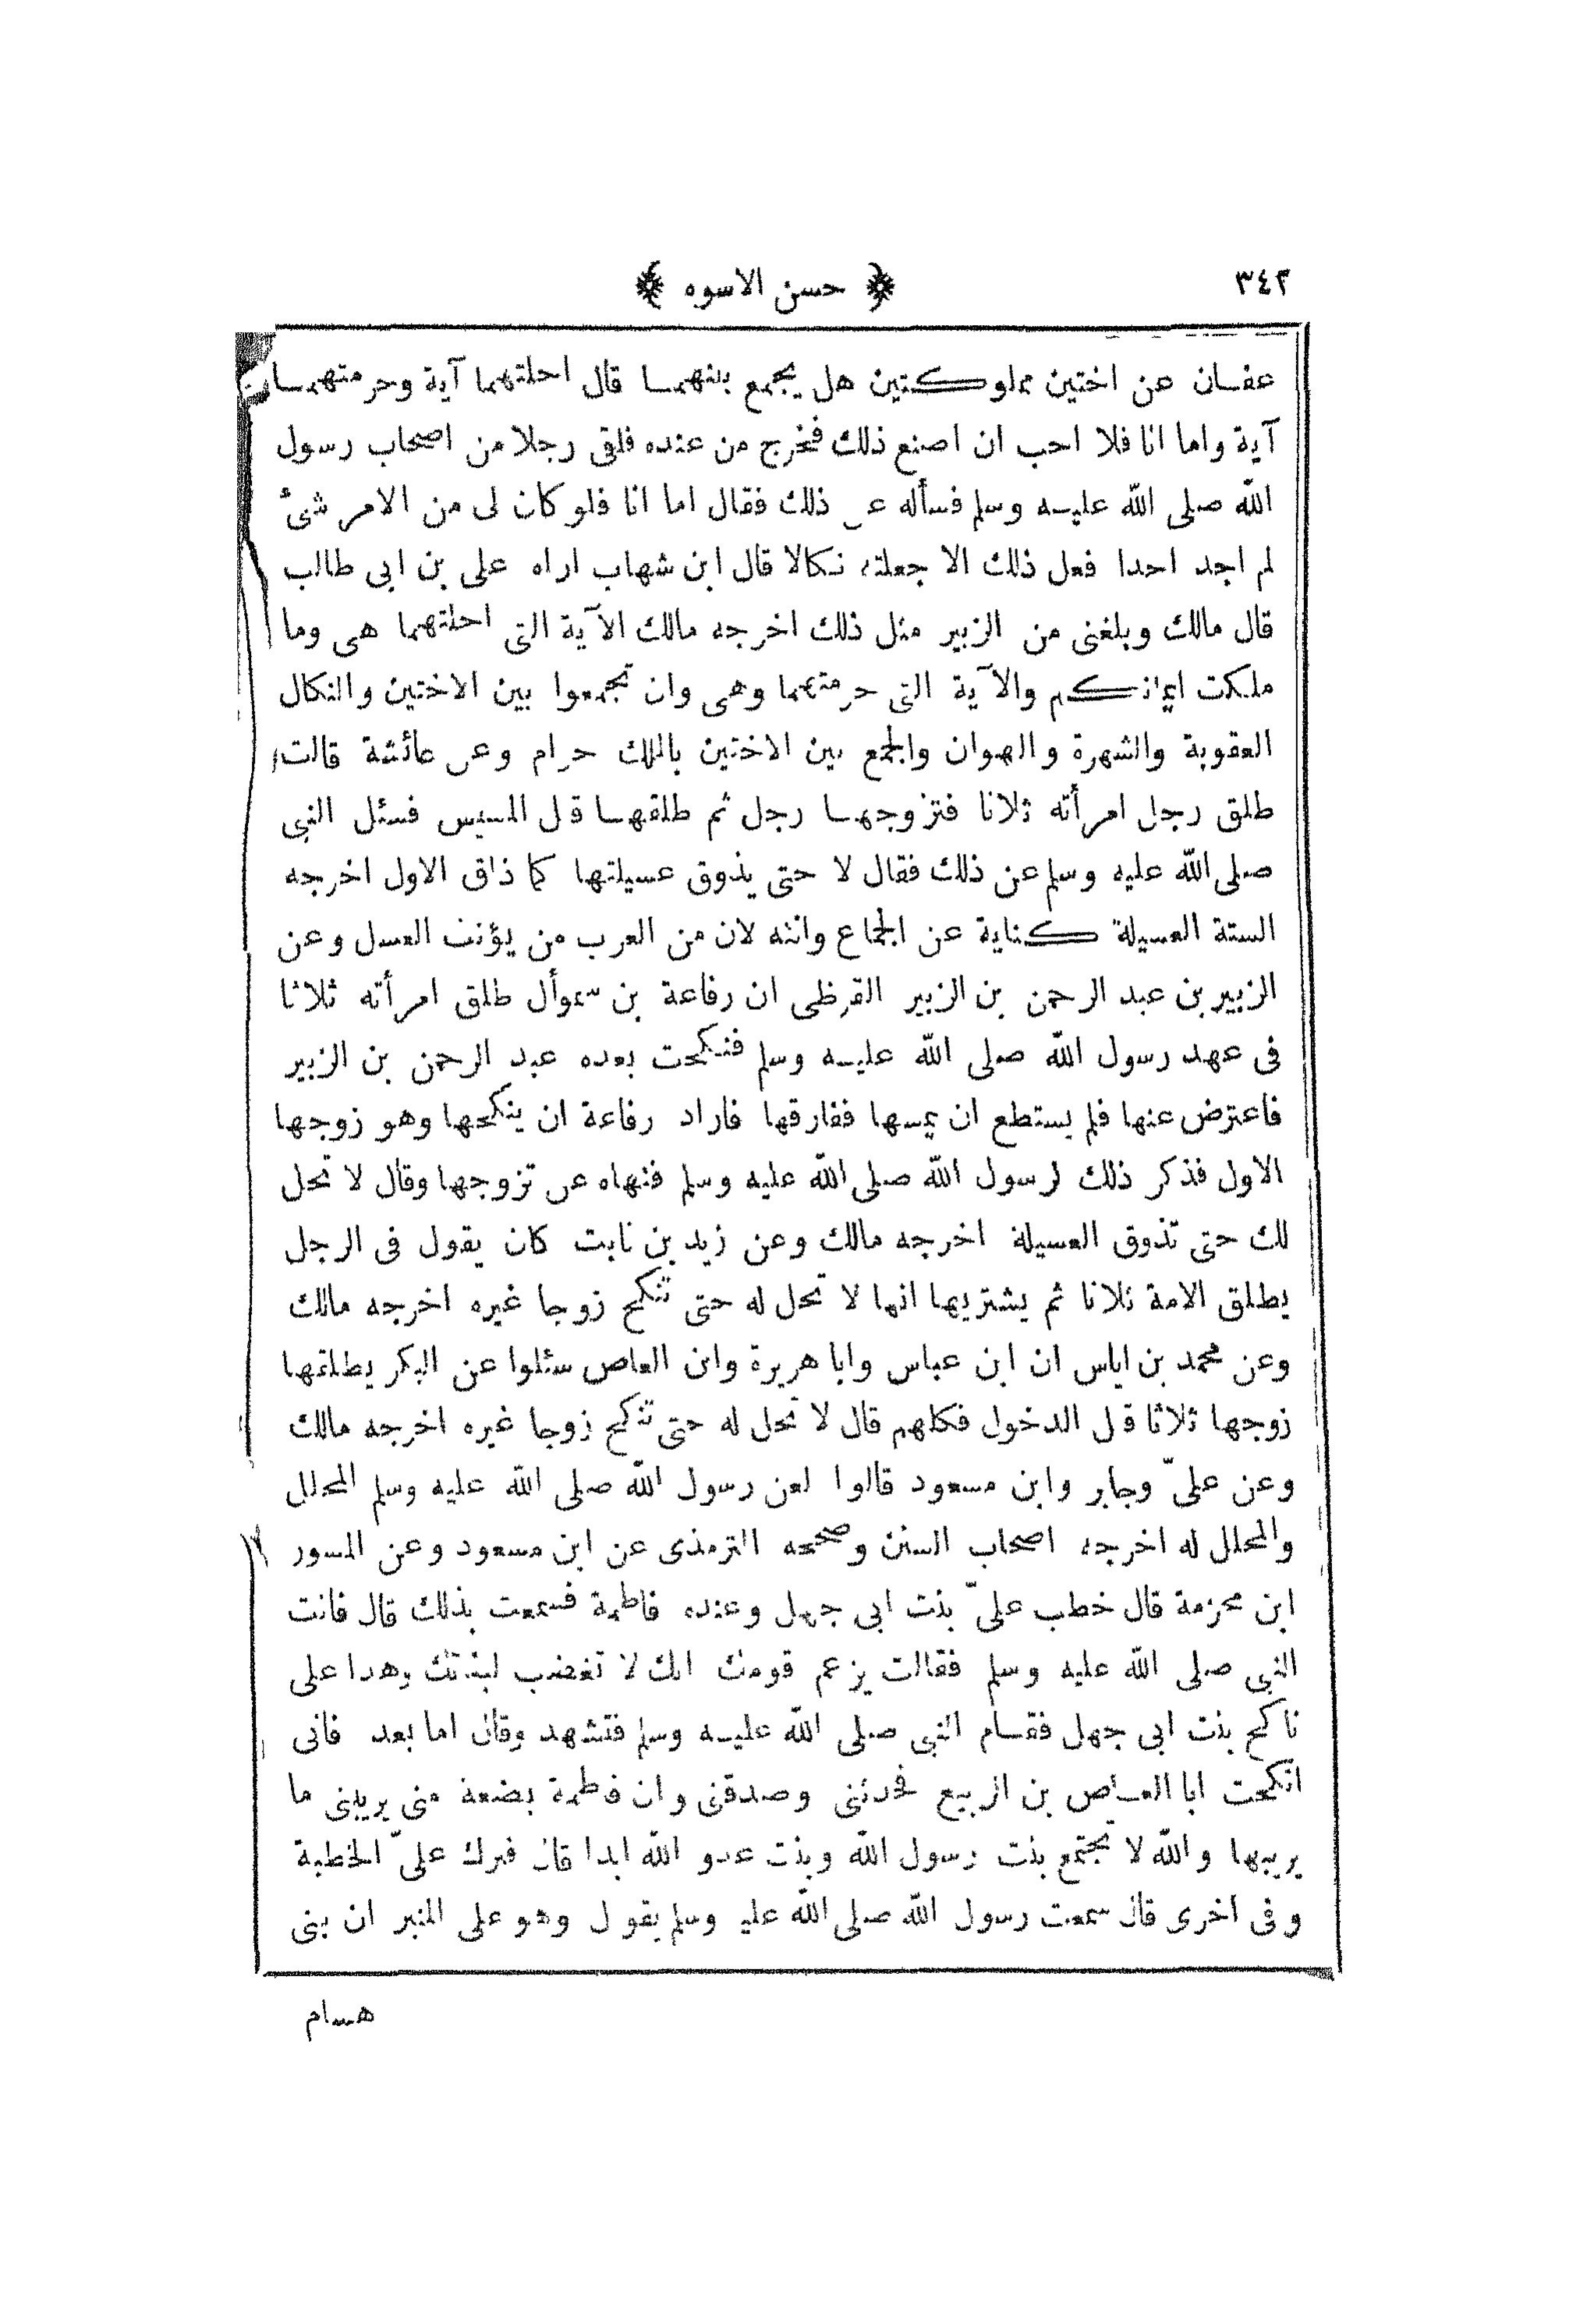 ٣٤٢ ﴿ حسن الاسوه ﴾
عفان عن اختين مملوكتين هل يجمع بينهما قال احلتهما آية وحرمتهما
آية واما انا فلا احب ان اصنع ذلك فخرج من عنده فلقى رجلا من اصحاب رسول
الله صلى الله عليه وسلم فسأله عن ذلك فقال اما انا فلو كان لى من الامر شئ
لم اجد احدا فعل ذلك الا جعلته نكالا قال ابن شهاب اراه على بن ابى طالب
قال مالك وبلغنى من الزبير مثل ذلك اخرجه مالك الآية التى احلتهما هى وما
ملكت ايمانكم والآية التى حرمتهما وهى وان تجمعوا بين الاختين والنكال
العقوبة والشهرة والهوان والجمع بين الاختين بالملك حرام وعن عائشة قالت
طلق رجل امرأته ثلاثا فتزوجها رجل ثم طلقها قبل المسيس فسئل النبى
صلى الله عليه وسلم عن ذلك فقال لا حتى يذوق عسيلتها كما ذاق الاول اخرجه
الستة العسيلة كناية عن الجماع وانثه لان من العرب من يؤنث العسل وعن
الزبير بن عبد الرحمن بن الزبير القرظى ان رفاعة بن سموأل طلق امرأته ثلاثا
فى عهد رسول الله صلى الله عليه وسلم فنكحت بعده عبد الرحمن بن الزبير
فاعترض عنها فلم يستطع ان يمسها ففارقها فاراد رفاعة ان ينكحها وهو زوجها
الاول فذكر ذلك لرسول الله صلى الله عليه وسلم فنهاه عن تزوجها وقال لا تحل
لك حتى تذوق العسيلة اخرجه مالك وعن زيد بن ثابت كان يقول فى الرجل
يطلق الامة ثلاثا ثم يشتريها انها لا تحل له حتى تنكح زوجا غيره اخرجه مالك
وعن محمد بن اياس ان ابن عباس وابا هريرة وابن العاص سئلوا عن البكر يطلقها
زوجها ثلاثا قبل الدخول فكلهم قال لا تحل له حتى تنكح زوجا غيره اخرجه مالك
وعن علىّ وجابر وابن مسعود قالوا لعن رسول الله صلى الله عليه وسلم المحلل
والمحلل له اخرجه اصحاب السنن وصححه الترمذى عن ابن مسعود وعن المسور
ابن مخرمة قال خطب علىّ بنت ابى جهل وعنده فاطمة فسمعت بذلك قال فاتت
النبى صلى الله عليه وسلم فقالت يزعم قومك انك لا تغضب لبناتك وهذا على
ناكح بنت ابى جهل فقام النبى صلى الله عليه وسلم فتشهد وقال اما بعد فانى
انكحت ابا العاص بن الربيع فحدثنى وصدقنى وان فاطمة بضعة منى يريبنى ما
يريبها والله لا تجتمع بنت رسول الله وبنت عدو الله ابدا قال فترك علىّ الخطبة
وفى اخرى قال سمعت رسول الله صلى الله عليه وسلم يقول وهو على المنبر ان بنى
هسام